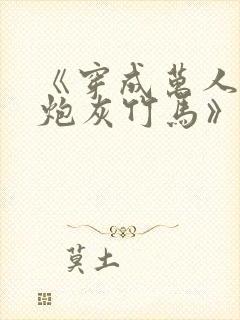 《穿成萬人
炮灰竹馬》
莫土